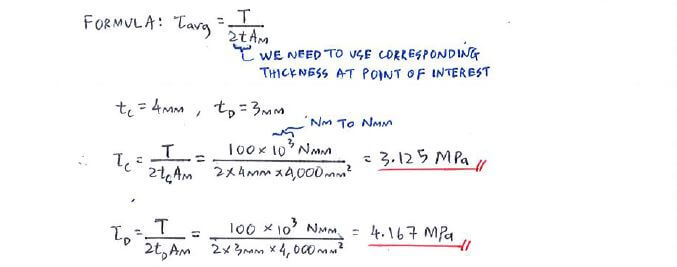 FORMULA: τavg = T / 2tAM
WE NEED TO USE CORRESPONDING
THICKNESS AT POINT OF INTEREST
tC = 4MM , tD = 3MM
NM TO NMM
∴ τC = T / 2tCAM = 100 × 10³ NMM / 2 × 4MM × 4,000MM² = 3.125 MPa
τD = T / 2tDAM = 100 × 10³ NMM / 2 × 3MM × 4,000MM² = 4.167 MPa